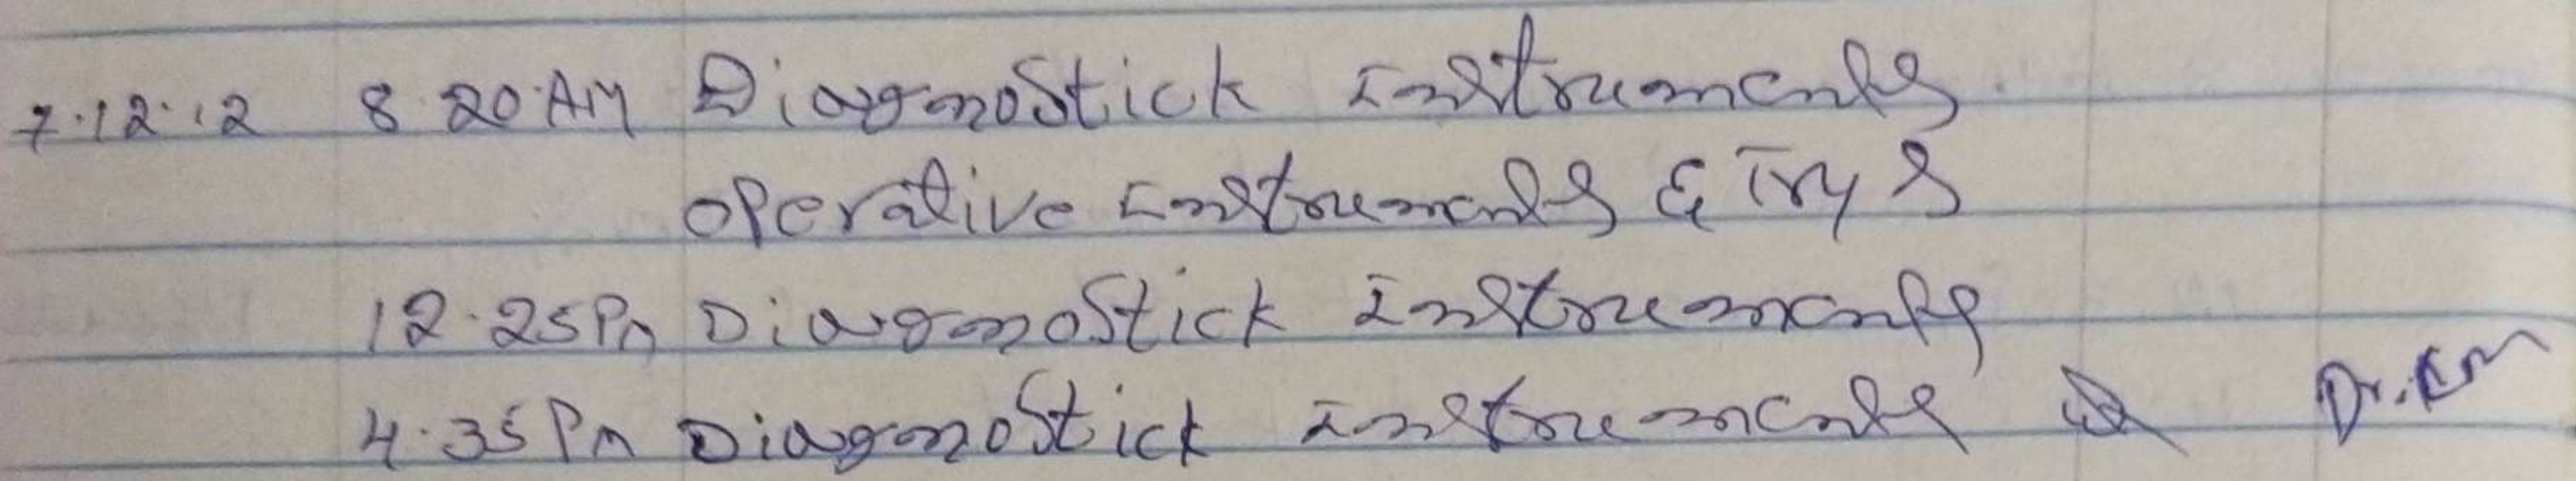 7.12.12 8.20 AM Diagnostick Instruments
Operative Instruments & Try S
12.25 Pm Diagnostick Instruments
4.35 Pm Diagnostick Instruments Dr. Km